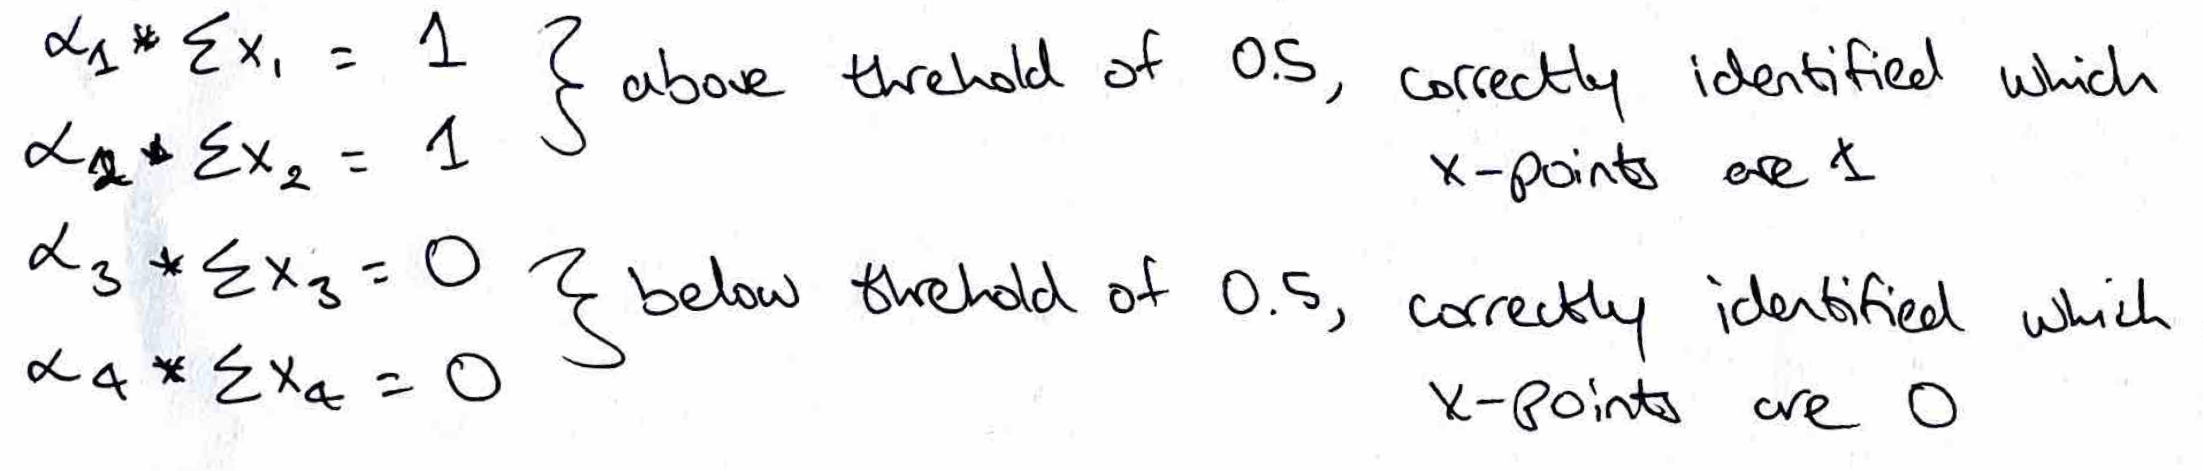 α1 * Σx1 = 1 } above threhold of 0.5, correctly identified which
α2 * Σx2 = 1 x-points are 1
α3 * Σx3 = 0 } below threhold of 0.5, correctly identified which
α4 * Σx4 = 0 x-points are 0